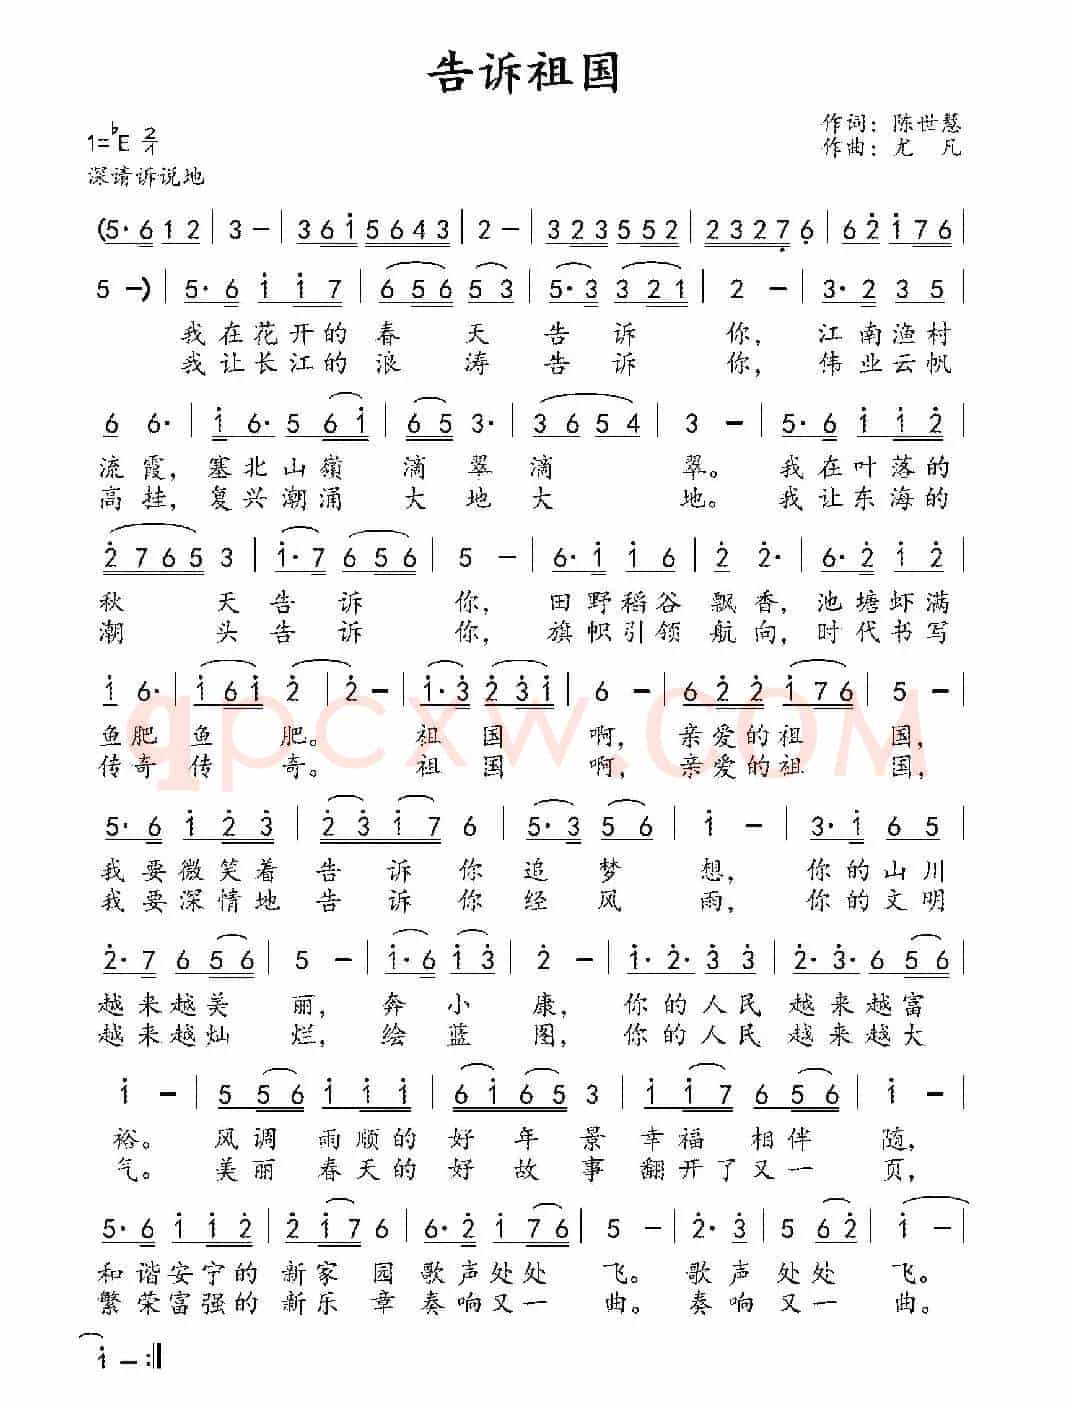 告诉祖国
作词：陈世慧
1=♭E 2/4
作曲：尤 凡
深请诉说地
(5· 6 1 2 | 3 – | 3 6 i 5 6 4 3 | 2 – | 3 2 3 5 5 2 | 2 3 2 7 6 | 6 2 i 7 6 |
5 –) | 5· 6 i i 7 | 6 5 6 5 3 | 5· 3 3 2 1 | 2 – | 3· 2 3 5 |
我在花开的春 天 告 诉 你， 江南渔村
我让长江的浪 涛 告 诉 你， 伟业云帆
6 6· | i 6· 5 6 i | 6 5 3· | 3 6 5 4 | 3 – | 5· 6 i i 2 |
流霞，塞北山嶺 滴 翠 滴 翠。 我在叶落的
高挂，复兴潮涌 大 地 大 地。 我让东海的
2 7 6 5 3 | i· 7 6 5 6 | 5 – | 6· i i 6 | 2 2· | 6· 2 i 2 |
秋 天 告 诉 你， 田野稻谷 飘香，池塘虾满
潮 头 告 诉 你， 旗帜引领 航向，时代书写
i 6· | i 6 i 2 | 2 – | i· 3 2 3 i | 6 – | 6 2 2 i 7 6 | 5 – |
鱼肥 鱼 肥。 祖 国 啊， 亲爱的祖 国，
传奇 传 奇。 祖 国 啊， 亲爱的祖 国，
qpcxw.COM
5· 6 i 2 3 | 2 3 i 7 6 | 5· 3 5 6 | i – | 3· i 6 5 |
我要微笑着 告 诉 你 追 梦 想， 你的山川
我要深情地 告 诉 你 经 风 雨， 你的文明
2· 7 6 5 6 | 5 – | i· 6 i 3 | 2 – | i· 2· 3 3 | 2· 3· 6 5 6 |
越来越美 丽， 奔 小 康， 你的人民 越来越富
越来越灿 烂， 绘 蓝 图， 你的人民 越来越大
i – | 5 5 6 i i i | 6 i 6 5 3 | i i 7 6 5 6 | i – |
裕。 风调 雨顺的 好 年 景 幸福 相伴 随，
气。 美丽 春天的 好 故 事 翻开了又一 页，
5· 6 i i 2 | 2 i 7 6 | 6· 2 i 7 6 | 5 – | 2· 3 | 5 6 2 | i – |
和谐安宁的 新家 园 歌声处处 飞。 歌声 处处 飞。
繁荣富强的 新乐 章 奏响又一 曲。 奏响 又一 曲。
i – :‖